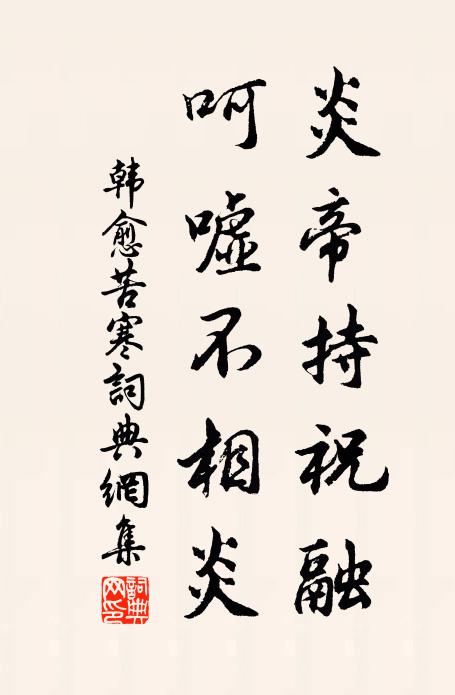 炎帝持祝融
呵嘘不相炎
韩愈苦寒詞典網集
詞典網印